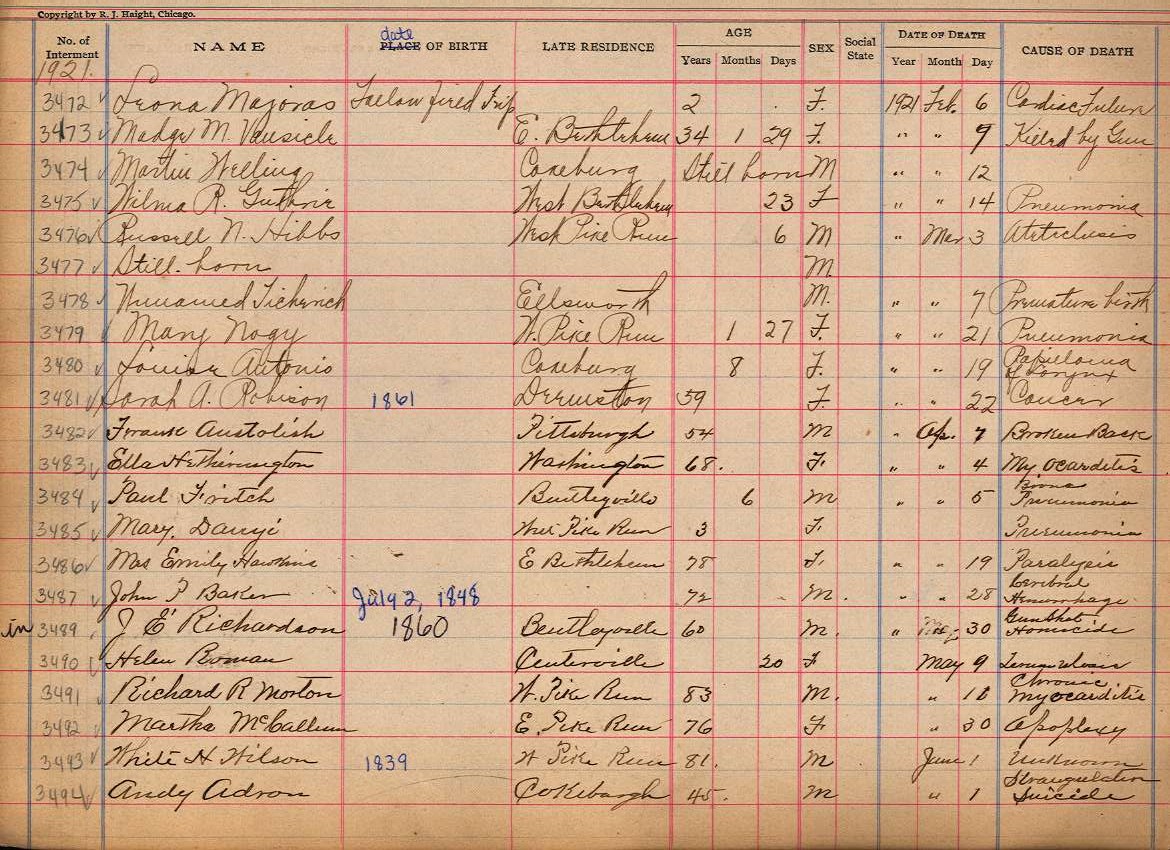 Copyright by R. J. Haight, Chicago.
No. of Interment NAME date PLACE OF BIRTH LATE RESIDENCE AGE Years Months Days SEX Social State DATE OF DEATH Year Month Day CAUSE OF DEATH
1921.
3472 Leona Majoras 2 F. 1921 Feb. 6 Cardiac
3473 Madge M. E. Bethlehem 34 1 29 F. " " 9 Killed by Gun
3474 Martin Welling Cokeburg Still born M " " 12
3475 Wilma R. Guthrie West Bethlehem 23 F " " 14 Pneumonia
3476 Russell N. Hibbs West Pike Run 6 M " Mar 3
3477 Still. born M.
3478 Unnamed Ellsworth M. " " 7 Premature birth
3479 Mary Nagy W. Pike Run 1 27 F. " " 21 Pneumonia
3480 Louise Antonio Cokeburg 8 F. " " 19 Papilloma of Larynx
3481 Sarah A. Robison 1861 Deemston 59 F. " " 22 Cancer
3482 Pittsburgh 54 M " Ap. 7 Broken Back
3483 Ella Hetherington Washington 68. F. " " 4 Myocarditis
3484 Paul Fritch Bentleyville 6 M " " 5 Pneumonia
3485 Mary. Danyi West Pike Run 3 F. Pneumonia
3486 Mrs Emily Hawkins E Bethlehem 78 F. " " 19 Paralysis
3487 John P Baker July 2, 1848 72 M. " " 28 Cerebral Hemorrhage
in 3489 J E Richardson 1860 Bentleyville 60 M. " 30 Gun Shot Homicide
3490 Helen Roman Centerville 20 F May 9
3491 Richard R Morton W. Pike Run 83 M. " 11 Chronic myocarditis
3492 Martha McCallum E. Pike Run 76 F. " 30 Apoplexy
3493 White H Wilson 1839 W Pike Run 81. M June 1 Unknown
3494 Andy Adron Cokeburgh 45. M " 1 Strangulation Suicide